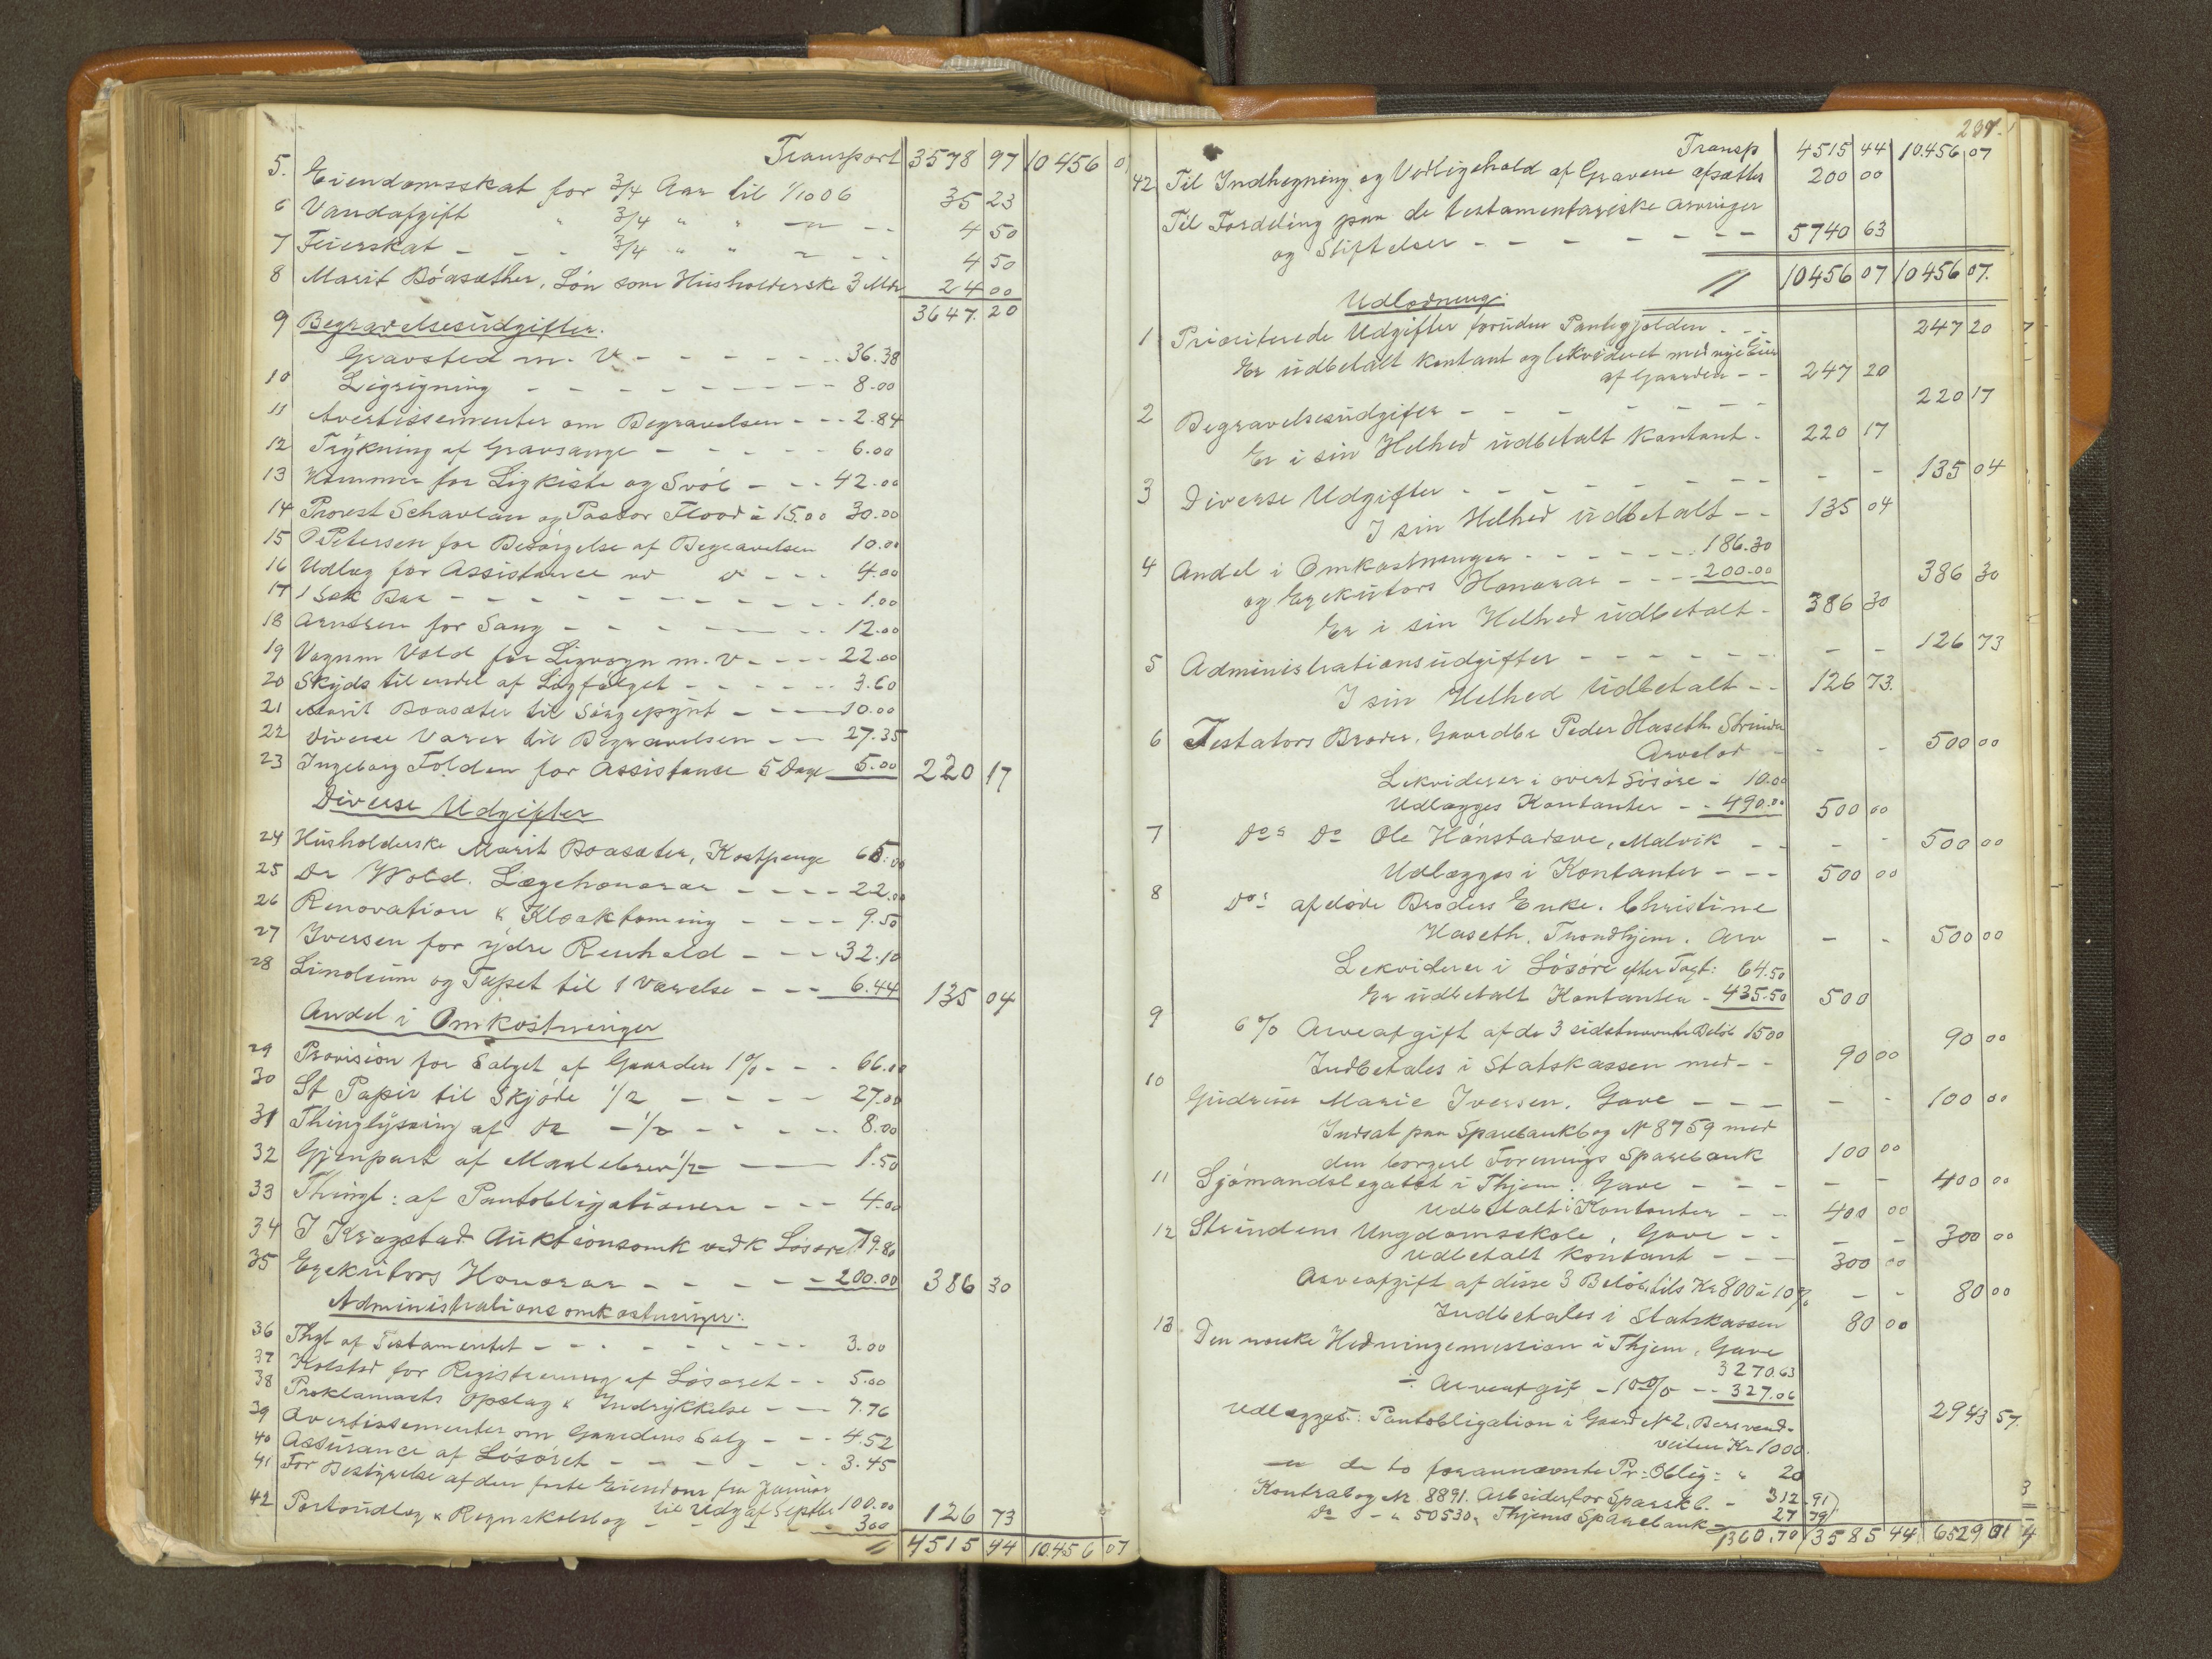 Transport 3578 97 10456 0
5. Eiendomsskat for 3/4 Aar til 1/10 06 35 23
6 Vandafgift " 3/4 " " — - - 4 50
7 Feierskat - - - 3/4 " " - - 4 50
8 Marit Bóasæther, Løn som Husholderske 3 Mdr 24 00
3647. 20
9 Begravelsesudgifter.
Gravsted m. V - - - - - - 36.38
10 Ligsigning - - - - - - - - 8.00
11 Avertissementer om Begravelsen - - - 2.84
12 Trykning af Gravsange - - - - - 6.00
13 Kammer for Ligkiste og Svøb - - - 42.00
14 Provst Schavlan og Pastor Flood à 15.00 30.00
15 P Petersen for Besørgelse af Begravelsen 10.00
16 Udlæg for Assistance vd d - - - 4.00
17 1 Sæk Bar - - - - - - - - - 1.00
18 Arntsen for Sang - - - - - - - 12.00
19 Vognm Vold for Ligvogn m. V - - - - 22.00
20 Skyds til endel af Ligfølget - - - - - 3.60
21 Marit Boasæter til Sørgepynt - - - 10.00
22 Diverse Varer til Begravelsen - - - 27.35
23 Ingeborg Folden for Assistance 5 Dage 5.00 220 17
Diverse Udgifter
24 Husholderske Marit Boasæter, Kostpenge 65.00
25 Dr Wold. Lægehonorar - - - - 22.00
26 Renovation & Kloaktømning - - - - 9.50
27 Iversen for ydre Renhold - - - 32.10
28 Linoleum og Tapet til 1 Værelse - - - 6.44 135 04
Andel i Omkostninger
29 Provision for Salget af Gaarden 1% - - - 66.00
30 St Papir til Skjøde 1/2 - - - - 27.00
31 Thinglysning af do - 1/2 - - - - 8.00
32 Gjenpart af Maalebrev 1/2 - - - 1.50
33 Thingl: af Pantobligationen - - - 4.00
34 I Kragstad Auktionsomk vedk Løsøret 79.80
35 Exekutors Honorar - - - - - 200.00 386 30
Administrationsomkostninger:
36 Thgl af Testamentet - - - - - - - - 3.00
37 Kolstad for Registrering af Løsøret - - 5.00
38 Proklamaets Opslag & Indrykkelse - - - 7.76
39 Avertissementer om Gaardens Salg - - - 4.52
40 Assurance af Løsøret - - - - - - 3.45
41 For Bestyrelse af den faste Eiendom fra Januar
til Udg af Septbr 100.00
42 Portoudlæg & Regnskabsbog - - - - 3.00 126 73
4515 44 10.456 07
237.
Transp 4515 44 10.456 07
42 Til Indhegning og Vedligehold af Gravene afsættes 200 00
Til Fordeling paa de testamentariske Arvinger
og Stiftelser - - - - - - - 5740 63
10456 07 10456 07.
Udlodning:
1 Prioriterede Udgifter foruden Pantegjælden - - - 247 20
Er udbetalt kontant og lekvideret med nye Eier
af Gaarden - - 247 20
2 Begravelsesudgifter - - - - - - - 220 17
Er i sin Helhed udbetalt kontant. 220 17
3 Diverse Udgifter - - - - - - - - - 135 04
I sin Helhed udbetalt - - 135 04
4 Andel i Omkostninger - - - - - - 186.30
og Exekutors Honorar - - - - 200.00 386 30
Er i sin Helhed udbetalt - 386 30
5 Administrationsudgifter - - - - - - - - 126 73
I sin Helhed udbetalt - - 126 73.
6 Testators Broder, Gaardbr Peder Haseth Strinden
Arvelod - - - 500 00
Lekviderer i overt Løsøre - 10.00
Udlægges Kontanter - - 490.00 500 00
7 Do s Do Ole Hónstadsve, Malvik - - - - 500 00
Udlægges i Kontanter - - - 500 00
8 Do s afdøde Broders Enke. Christine
Haseth. Trondhjem. Arv - - 500 00
Lekviderer i Løsøre efter Tagt: 64.50
Er udbetalt Kontanter - 435.50 500
9 6% Arveafgift af de 3 sidstnævnte Beløb 1500 90 00
Indbetales i Statskassen med - - 90 00
10 Gudrun Marie Iversen. Gave - - - - - 100 00
Indsat paa Sparebankbog No 8759 med
den borgerl Forenings Sparebank 100 00
11 Sjømandslegatet i Thjem: Gave - - - - - 400 00
Udbetalt i Kontanter - - 400 00
12 Strindens Ungdomsskole, Gave - - - - 300 00
Udbetalt kontant - - - 300 00
Arveafgift af disse 3 Beløb, tils Kr 800 à 10% - - 80 00
Indbetales i Statskassen 80 00
13. Den norske Hedningemission i Thjem, Gave
3270.63
÷ Arveafgif - 10% - - 327.06
2943 57.
Udlægges: Pantobligation i Gaard No 2, Bersvend-
veiten Kr 1000.
— de to forannævnte Pr: Oblig: " 20
Kontrabog Nr. 8891. Arbeiderfor Sparekb. - 312.91
Do - " 50530, Thjems Sparebank - 27 79
1360.70 3585 44 6529 01